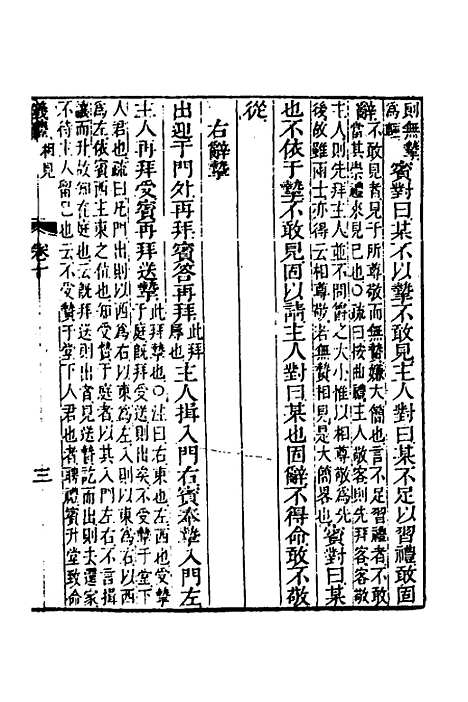 則無摯
為輒
賓對曰某不以摯不敢見主人對曰某不足以習禮敢固
辭
不敢見者見于所尊敬而無贄嫌大簡也言不足習禮者不敢
當其崇禮來見己也〇疏曰按曲禮主人敬客則先拜客客敬
主人則先拜主人並不問爵之大小惟以相尊敬為先
後故雖兩士亦得云相尊敬者無贄相見是大簡畧也
賓對曰某
也不依于摯不敢見固以請主人對曰某也固辭不得命敢不敬
從
右辭摯
出迎于門外再拜賓答再拜
此拜
辱也
主人揖入門右賓奉摯入門左
主人再拜受賓再拜送摯
此拜摯也〇注曰右東也左西也受摯
于庭既拜受送則出矣不受摯于堂下
人君也疏曰凡門出則以西為右以東為左入則以東為右以西
為左依賓西主東之位也知受贄于庭者以其入門左右不言揖
讓而升故知在庭也云既拜送則出者見送贄訖而出則去還家
不待主人留己也云不受贄于堂下人君也者聘禮賓升堂致命
儀禮 相見 卷十 三